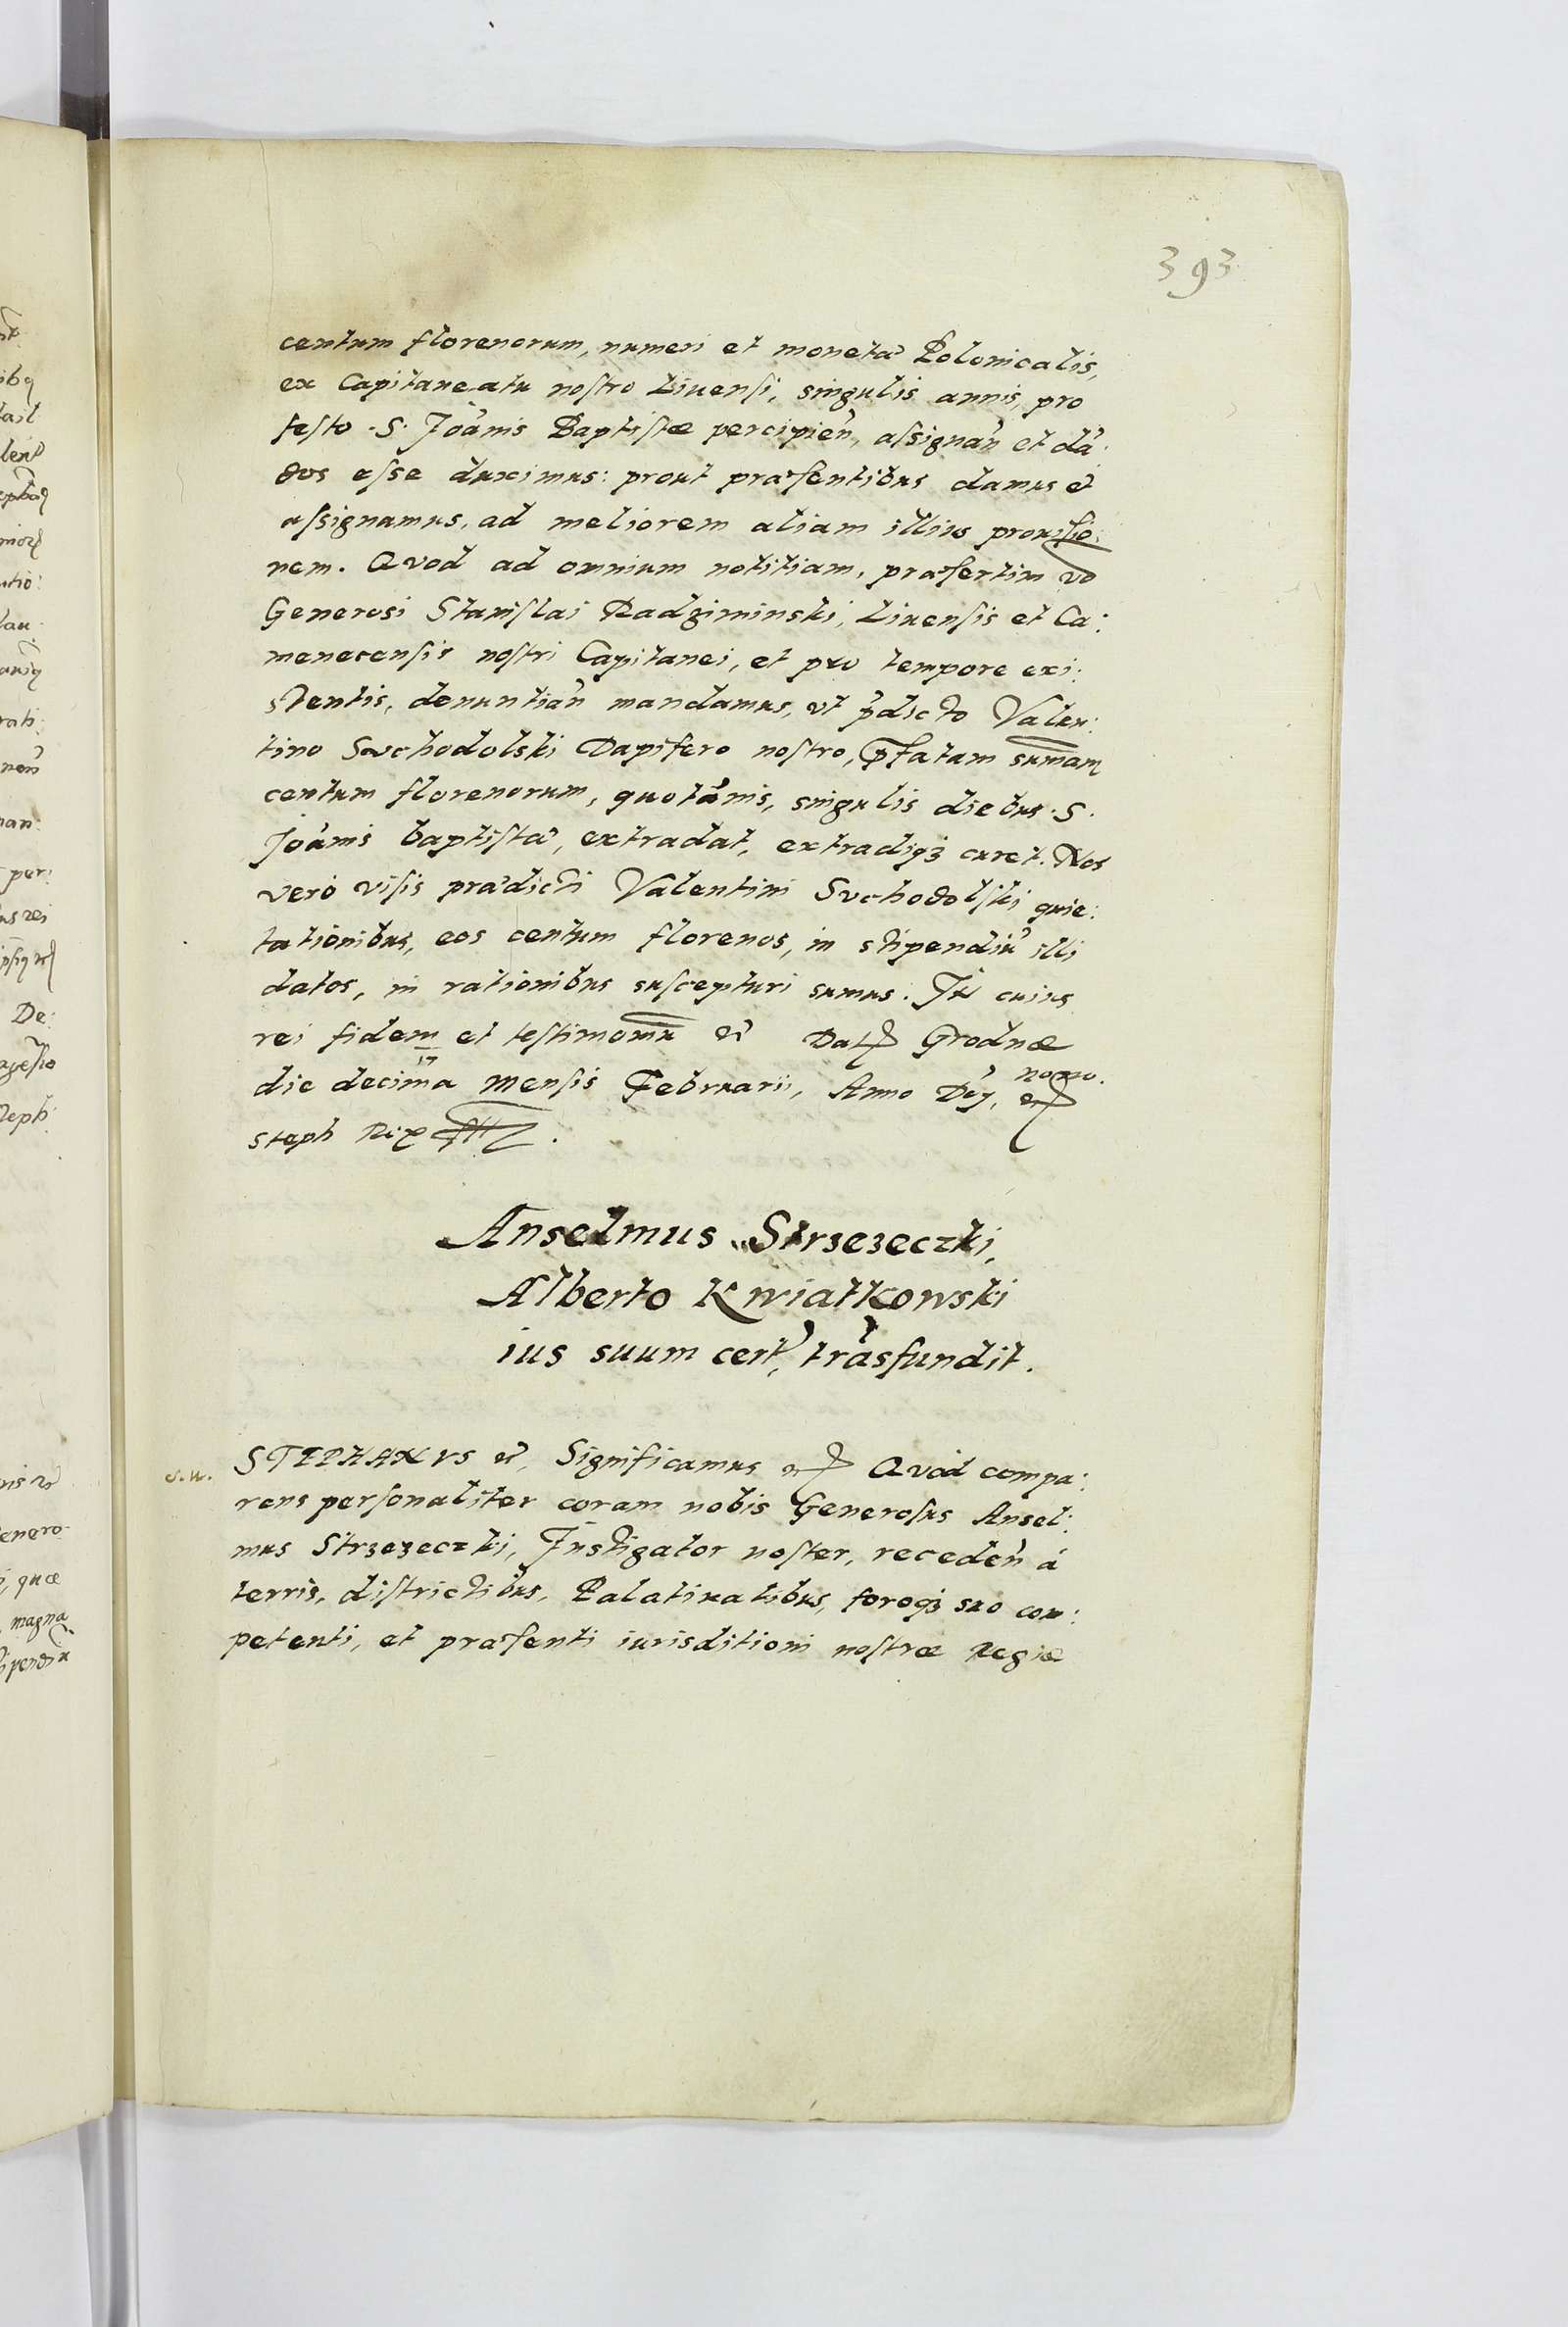 393
centum florenorum, numeri et monetæ Polonicalis,
ex Capitaneatu nostro Liuensi, singulis annis, pro
festo S. Joãnis Baptistæ percipień, assignań et dã:
dos esse duximus: prout præsentibus damus et
assignamus, ad meliorem aliam illius prouisio:
nem. Quod ad omnium notitiam, præsertim vo
Generosi Stanislai Radziminski, Liuensis et Ca:
menecensis nostri Capitanei, et pro tempore exi:
stentis, denuntiań mandamus, vt p̃dicto Valen:
tino Suchodolski Dapifero nostro, p̃fatam sum̃am
centum florenorum, quotãnis, singulis diebus S.
Joãnis baptistæ, extradat, extradiq3 curet. Nos
vero visis prædicti Valentini Suchodolski quie:
tationibus, eos centum florenos, in stipendiũ illi
datos, in rationibus suscepturi sumus. In cuius
rei fidem et testimoniũ etc Datt Grodnæ
die decima mensis Februarii, Anno Dnj, etc
nono.
Steph Rex
Anselmus Strzezeczki,
Alberto Kwiatkowski
ius suum cert, trãsfundit.
STEPHANVS etc, Significamus etc Quod compa:
rens personaliter coram nobis Generosus Ansel:
mus Strzezeczki, Instigator noster, recedeń á
terris, districtibus, Palatinatibus, foroq3 suo com:
petenti, et præsenti iurisditioni nostræ Regiæ